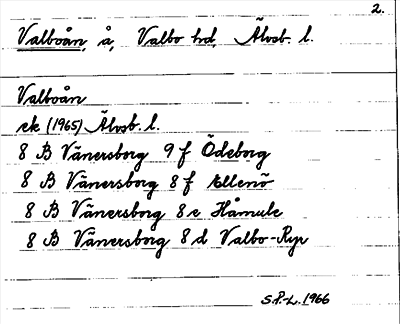 2.
Valboån, å, Valbo hd, Älvsb. l.
Valboån
ek (1965) Älvsb. l.
8 B Vänersborg 9 f Ödeborg
8 B Vänersborg 8 f Ellenö
8 B Vänersborg 8 e Håmule
8 B Vänersborg 8 d Valbo-Ryr
S.P.-L. 1966